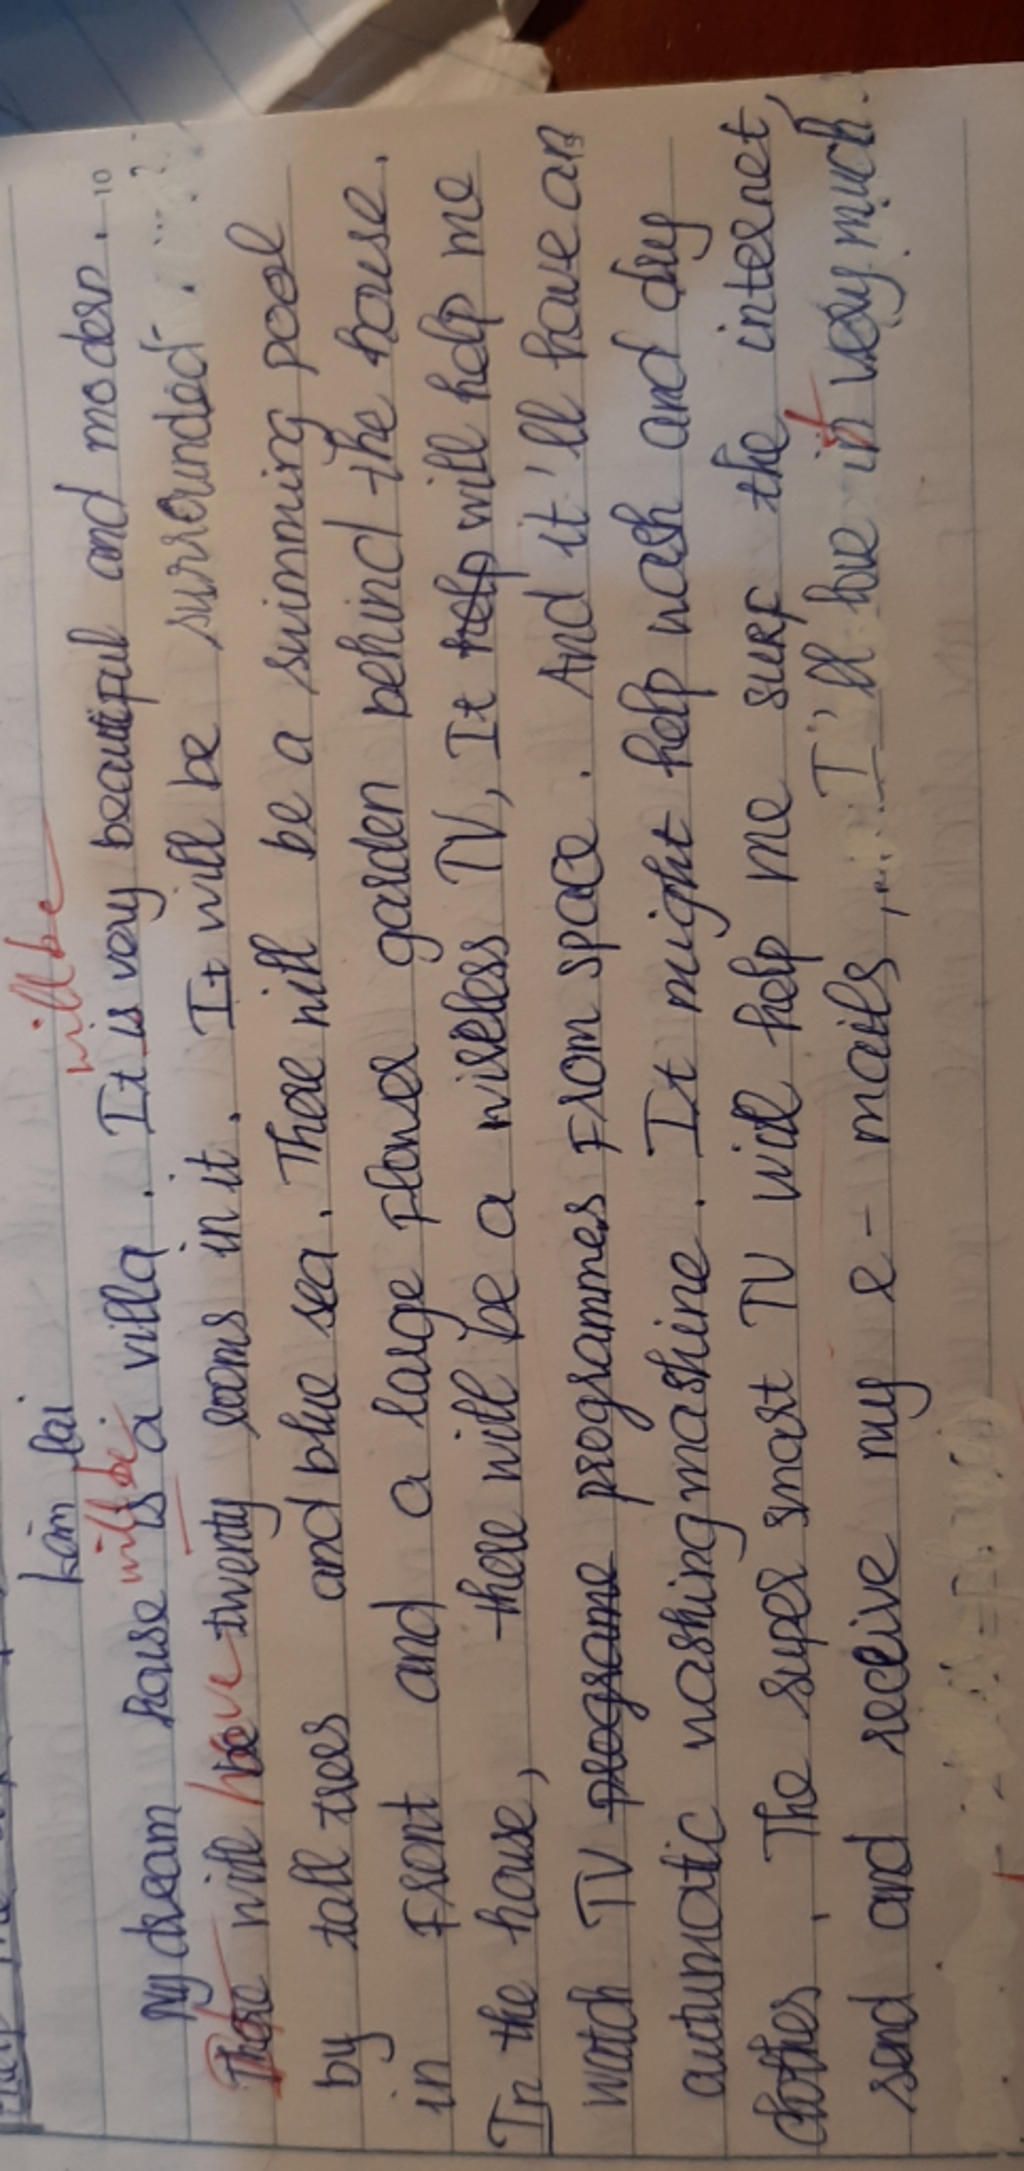 kōm lai
will be
will be
My dream house is a villa. It is very beautiful and modern. 10
have
There will be twenty rooms in it. It will be surrounded
by tall trees and blue sea. There will be a swimming pool
in front and a large flower garden behind the house.
In the house, there will be a wireless TV, It help will help me
watch TV programe programmes from space. And it'll have an
autumatic washing mashine. It might help wash and dry
clothes. The super smart TV will help me surf the internet,
send and receive my e-mails,... I'll live in very much.
it